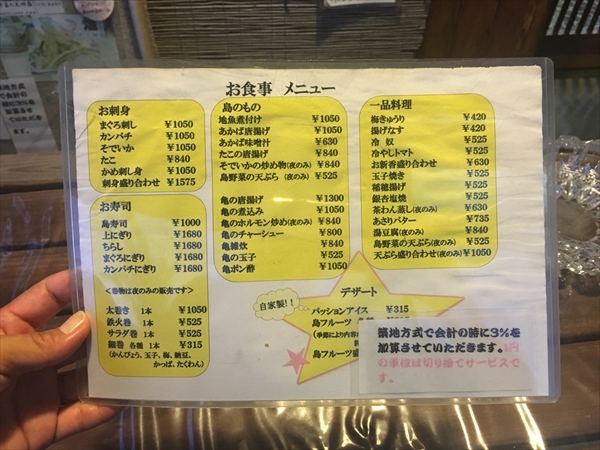 お食事 メニュー
お刺身
まぐろ刺し ¥1050
カンパチ ¥1050
そでいか ¥1050
たこ ¥840
かめ刺し身 ¥1050
刺身盛り合わせ ¥1575
お寿司
島寿司 ¥1000
上にぎり ¥1680
ちらし ¥1680
まぐろにぎり ¥1680
カンパチにぎり ¥1680
<巻物は夜のみの販売です>
太巻き 1本 ¥1050
鉄火巻 1本 ¥525
サラダ巻 1本 ¥525
細巻 各種 1本 ¥315
(かんぴょう、玉子、梅、納豆、
かっぱ、たくわん)
島のもの
地魚煮付け ¥1050
あかば唐揚げ ¥1050
あかば味噌汁 ¥630
たこの唐揚げ ¥840
そでいかの炒め物(夜のみ) ¥840
島野菜の天ぷら (夜のみ) ¥525
亀の唐揚げ ¥1300
亀の煮込み ¥1050
亀のホルモン炒め(夜のみ) ¥840
亀のチャーシュー ¥800
亀雑炊 ¥840
亀の玉子 ¥525
亀ポン酢 ¥1050
一品料理
梅きゅうり ¥420
揚げなす ¥420
冷 奴 ¥525
冷やしトマト ¥525
お新香盛り合わせ ¥630
玉子焼き ¥525
稲穂揚げ ¥525
銀杏塩焼 ¥525
茶わん蒸し(夜のみ) ¥420
あさりバター ¥735
湯豆腐(夜のみ) ¥840
島野菜の天ぷら(夜のみ) ¥525
天ぷら盛り合せ(夜のみ) ¥1050
デザート
自家製!!
パッションアイス ¥315
島フルーツ
(季節により内容
島フルーツ盛
築地方式で会計の時に3%を
加算させていただきます。1円
の単位は切り捨てサービスで
す。